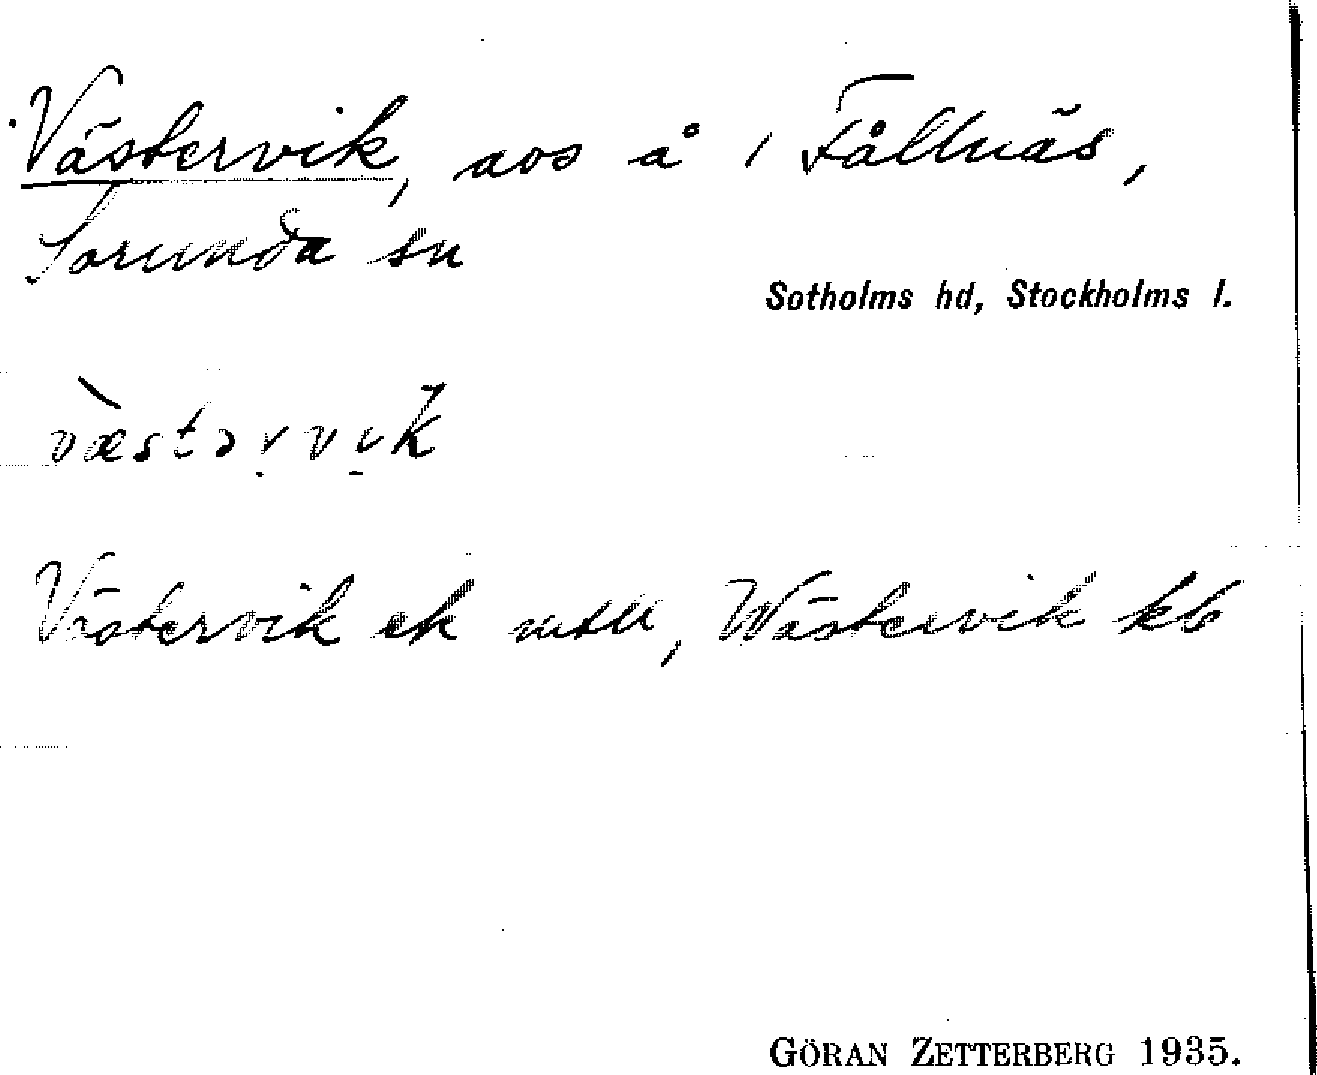 Västervik, aos å 1 Fållnäs,
Sorunda sn
Sotholms hd, Stockholms l.
væstərvik
Västervik ek mtll, Wästervik kb
GÖRAN ZETTERBERG 1935.